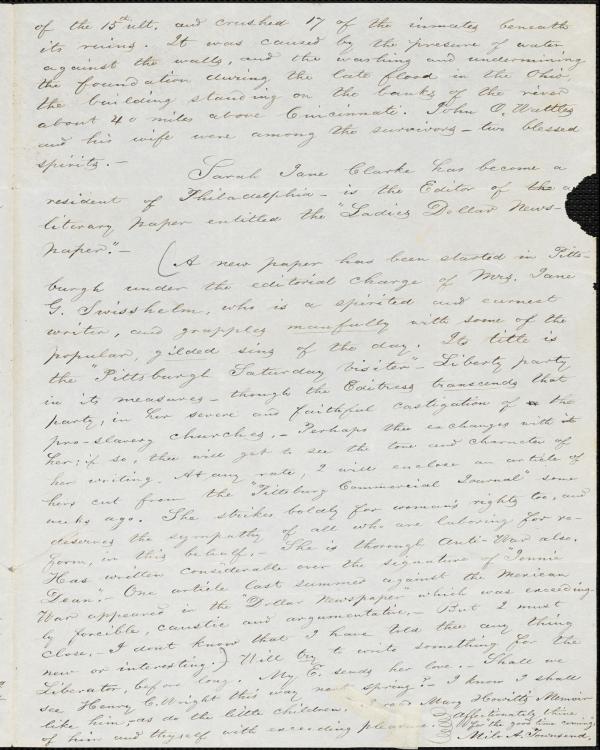 of the 15th ult. and crushed 17 of the inmates beneath
its ruins. It was caused by the presure of water
against the walls, and the washing and undermining
the foundation during the late flood in the Ohio,
the building standing on the banks of the river
about 40 miles above Cincinnati. John O. Wattles
and his wife were among the survivors – two blessed
spirits. –
Sarah Jane Clarke has become a
resident of Philadelphia – is the Editor of the a
literary paper entitled the "Ladies Dollar News-
paper". –
(A new paper has been started in Pitts-
burgh under the editorial charge of Mrs. Jane
G. Swisshelm, who is a spirited and earnest
writer, and grapples manfully with some of the
popular, gilded sins of the day. Its title is
the "Pittsburgh Saturday Visiter" – Liberty party
in its measures – though the Editress transcends that
party, in her severe and faithful castigation of the
pro-slavery churches. – Perhaps thee exchanges with
her; if so, thee will get to see the tone and character of
her writing. At any rate, I will enclose an article of
hers cut from the "Pittsburg Commercial Journal" some
weeks ago. She strikes boldly for woman's rights too, and
deserves the sympathy of all who are laboring for re-
form, in this behalf. – She is thorough Anti-War also.
Has written considerable over the signature of "Jennie
Dean". – One article last summer against the Mexican
War appeared in the "Dollar Newspaper" which was exceeding-
ly forcible, caustic and argumentative. – But I must
close. – I dont know that I have told thee any thing
new or interesting.) Will try to write something for the
Liberator, before long. My E. sends her love. – Shall we
see Henry C. Wright this way next spring? – I know I shall
like him, – as do the little children. I read Mary Howitt's Memoir
of him and thyself with exceeding pleasure.
Affectionately thine
for the good time coming
Milo A. Townsend.